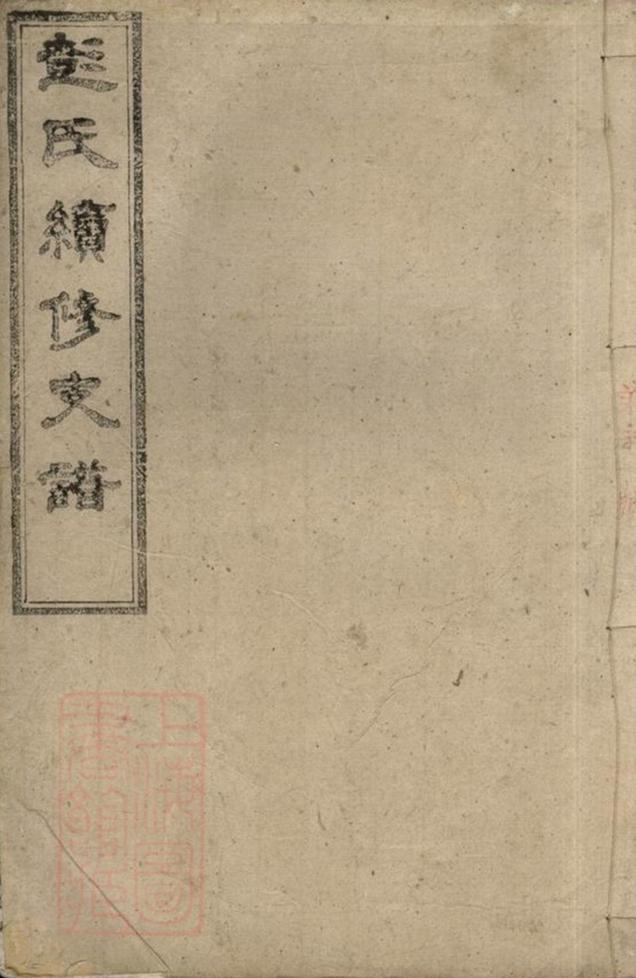 彭氏續修支譜
上海圖書館藏